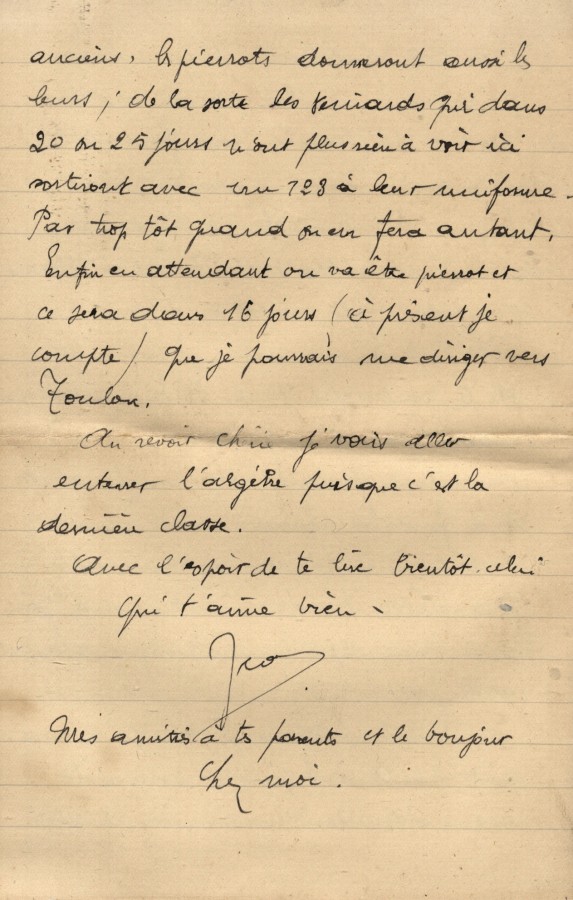 anciens, les pierrots donneront aussi les
leurs ; de la sorte les renards qui dans
20 ou 25 jours n'ont plus rien à voir ici
sortiront avec un 123 à leur uniforme.
Par trop tôt quand on en fera autant.
Enfin en attendant on va être pierrot et
ce sera dans 16 jours (à présent je
compte) que je pourrais me diriger vers
Toulon.
Au revoir chérie je vais aller
enterrer l'algèbre puisque c'est la
dernière classe.
Avec l'espoir de te lire bientôt. celui
qui t'aime bien -
Mes amitiés à tes parents et le bonjour
chez moi.